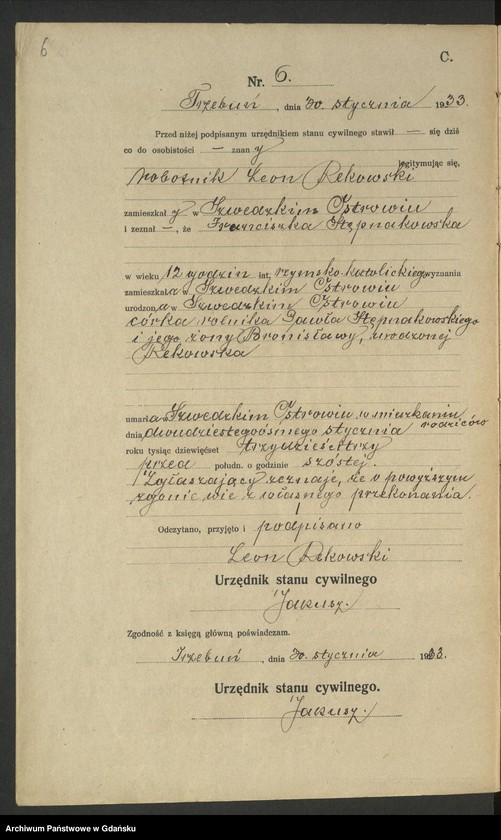 6
C.
Nr. 6.
Trzebuń, dnia 30 stycznia 1933.
Przed niżej podpisanym urzędnikiem stanu cywilnego stawił — się dziś
co do osobistości — znany
legitymując się,
robotnik Leon Rekowski
zamieszkały w Szwedzkim Ostrowiu
i zeznał —, że Franciszka Stepnakowska
w wieku 12 godzin lat, rzymsko-katolickiego wyznania
zamieszkała w Szwedzkim Ostrowiu
urodzona w Szwedzkim Ostrowiu
córka rolnika Pawła Stepnakowskiego
i jego żony Bronisławy, urodzonej
Rekowska
umarła w Szwedzkim Ostrowiu w mieszkaniu rodziców
dnia dwudziestegoósmego stycznia
roku tysiąc dziewięćset trzydzieścitrzy
przed połudn. o godzinie szóstej.
Zgłaszający zeznaje, że o powyższym
zgonie wie z własnego przekonania.
Odczytano, przyjęto i podpisano
Leon Rekowski
Urzędnik stanu cywilnego
Jakusz.
Zgodność z księgą główną poświadczam.
Trzebuń, dnia 30. stycznia 1933.
Urzędnik stanu cywilnego.
Jakusz.
Archiwum Państwowe w Gdańsku